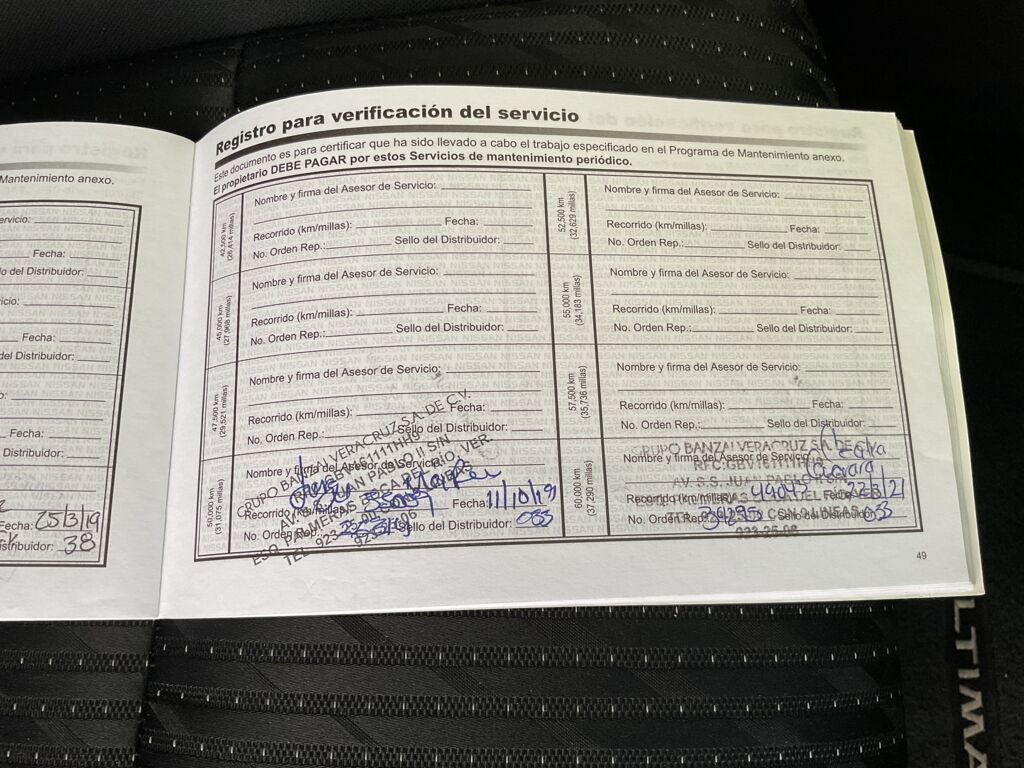 Mantenimiento anexo.
Fecha:
Fecha:
Fecha:
Fecha: 25/3/19
38
Registro para verificación del servicio
Este documento es para certificar que ha sido llevado a cabo el trabajo especificado en el Programa de Mantenimiento anexo.
El propietario DEBE PAGAR por estos Servicios de mantenimiento periódico.
42,500 km
(26,414 millas)
Nombre y firma del Asesor de Servicio:
Recorrido (km/millas): Fecha:
No. Orden Rep.: Sello del Distribuidor:
45,000 km
(27,968 millas)
Nombre y firma del Asesor de Servicio:
Recorrido (km/millas): Fecha:
No. Orden Rep.: Sello del Distribuidor:
47,500 km
(29,521 millas)
Nombre y firma del Asesor de Servicio:
Recorrido (km/millas): Fecha:
No. Orden Rep.: Sello del Distribuidor:
50,000 km
(31,075 millas)
Nombre y firma del Asesor de Servicio
Recorrido (km/millas): Fecha: 11/10/19
No. Orden Rep.: Sello del Distribuidor: 033
GRUPO BANZAI VERACRUZ S.A. DE C.V.
JUAN PABLO II S/N
VER.
52,500 km
(32,629 millas)
Nombre y firma del Asesor de Servicio:
Recorrido (km/millas): Fecha:
No. Orden Rep.: Sello del Distribuidor:
55,000 km
(34,183 millas)
Nombre y firma del Asesor de Servicio:
Recorrido (km/millas): Fecha:
No. Orden Rep.: Sello del Distribuidor:
57,500 km
(35,736 millas)
Nombre y firma del Asesor de Servicio:
Recorrido (km/millas): Fecha:
No. Orden Rep.: Sello del Distribuidor:
60,000 km
(37,290 millas)
GRUPO BANZAI VERACRUZ S.A. DE
Nombre y firma del Asesor de Servicio
Recorrido (km/millas): Fecha: 22/3/21
No. Orden Rep.: Sello del Distribuidor: 033
CON 9 LINEAS
49
ALTIMA